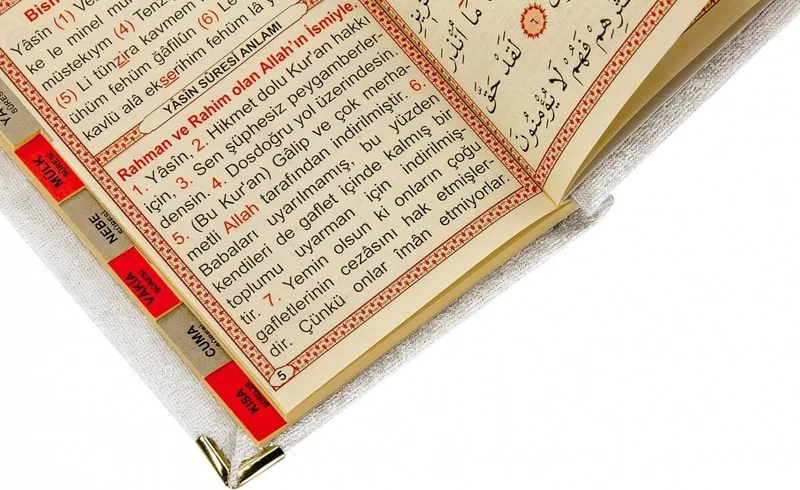 Bism
Yâsîn (1) Ve
ke le minel mu
müstekıym (4) Tenz
(5) Li tünzira kavmem
ühüm fehüm ğafilûn (6) Le
kavlü alâ ekserihim fehüm lâ y
YÂSİN SÛRESİ ANLAMI
Rahman ve Rahim olan Allah'ın İsmiyle
1. Yâsîn, 2. Hikmet dolu Kur'an hakk
için. 3. Sen şüphesiz peygamberler-
densin. 4. Dosdoğru yol üzerindesin.
5. (Bu Kur'an) Gâlip ve çok merha-
metli Allah tarafından indirilmiştir. 6.
Babaları uyarılmamış, bu yüzden
kendileri de gaflet içinde kalmış bir
toplumu uyarman için indirilmiş-
tir. 7. Yemin olsun ki onların çoğu
gafletlerinin cezâsını hak etmişler-
dir. Çünkü onlar îmân etmiyorlar.
5
لَقَدْ حَقَّ
فَهُمْ لَا يُؤْمِنُونَ
YÂ
SÛRESİ
MÜLK
SÛRESİ
NEBE
SÛRESİ
VAKIA
SÛRESİ
CUMA
SÛRESİ
KISA
SÛRELER